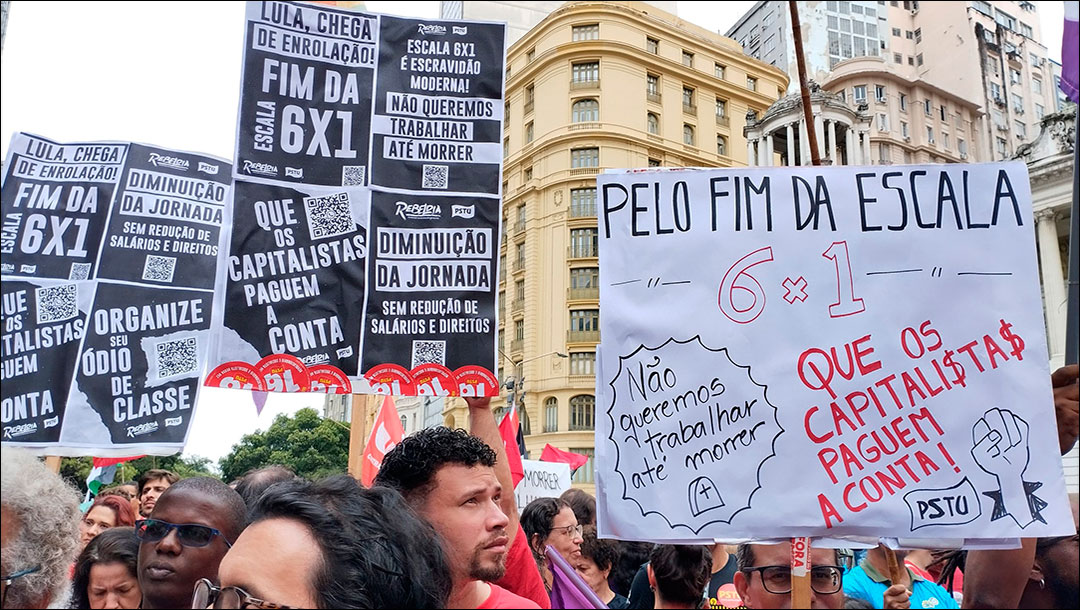 LULA, CHEGA
DE ENROLAÇÃO!
FIM DA
ESCALA
6X1
REBELDIA
PSTU
REBELDIA
PSTU
ESCALA 6X1
É ESCRAVIDÃO
MODERNA!
NÃO QUEREMOS
TRABALHAR
ATÉ MORRER
QUE
OS
CAPITALISTAS
PAGUEM
A
CONTA
REBELDIA
PSTU
REBELDIA
PSTU
DIMINUIÇÃO
DA JORNADA
SEM REDUÇÃO DE
SALÁRIOS E DIREITOS
LULA, CHEGA
DE ENROLAÇÃO!
FIM DA
ESCALA
6X1
REBELDIA
PSTU
REBELDIA
PSTU
DIMINUIÇÃO
DA JORNADA
SEM REDUÇÃO DE
SALÁRIOS E DIREITOS
QUE
OS
TALISTAS
GUEM
A
ONTA
REBELDIA
PSTU
ORGANIZE
SEU
ÓDIO
DE
CLASSE
REBELDIA
PSTU
PELO FIM DA ESCALA
— " — 6x1 — " —
Não
queremos
trabalhar
até morrer
QUE OS
CAPITALI$TA$
PAGUEM
A CONTA!
PSTU
MORRER
FORA